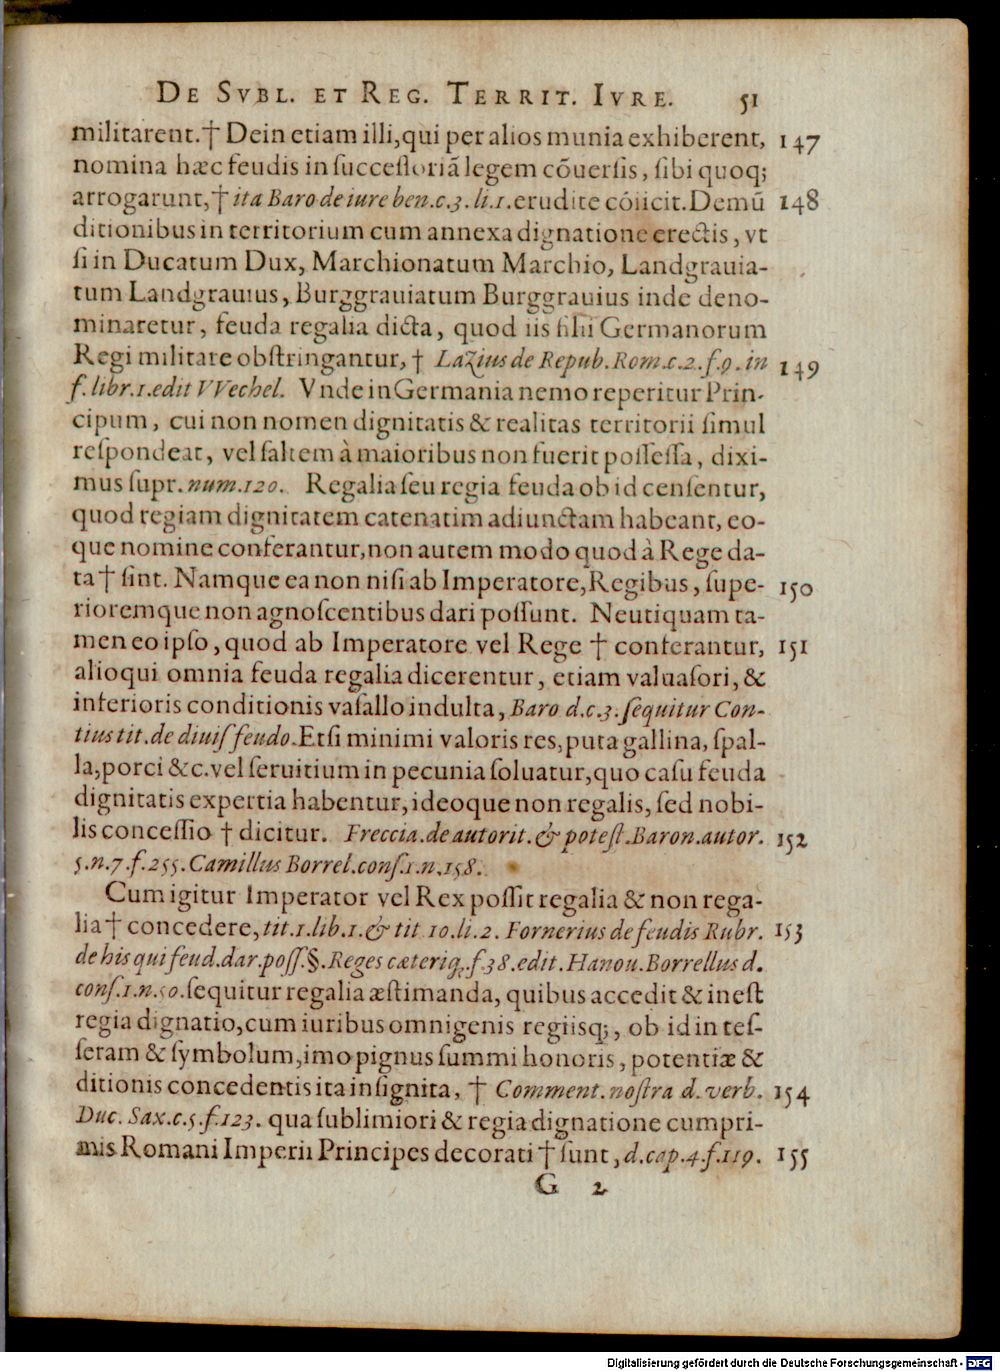 DE SVBL. ET REG. TERRIT. IVRE. 51
militarent.† Dein etiam illi,qui per alios munia exhiberent, 147
nomina hæc feudis in ſucceſſoriã legem cõuerſis, ſibi quoq;
arrogarunt,† ita Baro de iure ben.c.3.li.1.erudite cóiicit.Demũ 148
ditionibus in territorium cum annexa dignatione erectis, vt
ſi in Ducatum Dux, Marchionatum Marchio, Landgrauia-
tum Landgrauius, Burggrauiatum Burggrauius inde deno-
minaretur, feuda regalia dicta, quod iis filii Germanorum
Regi militare obſtringantur, † Lazius de Repub.Rom.c.2.f.9.in 149
f.libr.1.edit VVechel. Vnde in Germania nemo reperitur Prin-
cipum, cui non nomen dignitatis & realitas territorii ſimul
reſpondeat, vel ſaltem à maioribus non fuerit poſſeſſa, dixi-
mus ſupr.num.120. Regalia ſeu regia feuda ob id cenſentur,
quod regiam dignitatem catenatim adiunctam habeant, eo-
que nomine conferantur,non autem modo quod à Rege da-
ta† ſint. Namque ea non niſi ab Imperatore,Regibus, ſupe- 150
rioremque non agnoſcentibus dari poſſunt. Neutiquam ta-
men eo ipſo, quod ab Imperatore vel Rege † conferantur, 151
alioqui omnia feuda regalia dicerentur, etiam valuaſori, &
inferioris conditionis vaſallo indulta, Baro d.c.3.ſequitur Con-
tius tit.de diuiſ feudo.Etſi minimi valoris res,puta gallina, ſpal-
la,porci &c.vel ſeruitium in pecunia ſoluatur,quo caſu feuda
dignitatis expertia habentur,ideoque non regalis, ſed nobi-
lis conceſſio † dicitur. Freccia.de autorit.& poteſt.Baron.autor. 152
5.n.7.f.255.Camillus Borrel.conſ.1.n.158.
Cum igitur Imperator vel Rex poſſit regalia & non rega-
lia† concedere,tit.1.lib.1.& tit 10.li.2. Fornerius de feudis Rubr. 153
de his qui feud.dar.poſſ.§.Reges cæteriq;.f.38.edit.Hanou.Borrellus d.
conſ.1.n.50.ſequitur regalia æſtimanda, quibus accedit & ineſt
regia dignatio,cum iuribus omnigenis regiisq;, ob id in teſ-
ſeram & ſymbolum,imo pignus ſummi honoris, potentiæ &
ditionis concedentis ita inſignita, † Comment.noſtra d.verb. 154
Duc. Sax.c.5.f.123. qua ſublimiori & regia dignatione cumpri-
mis Romani Imperii Principes decorati † ſunt, d.cap.4.f.119. 155
G 2
Digitalisierung gefördert durch die Deutsche Forschungsgemeinschaft - DFG